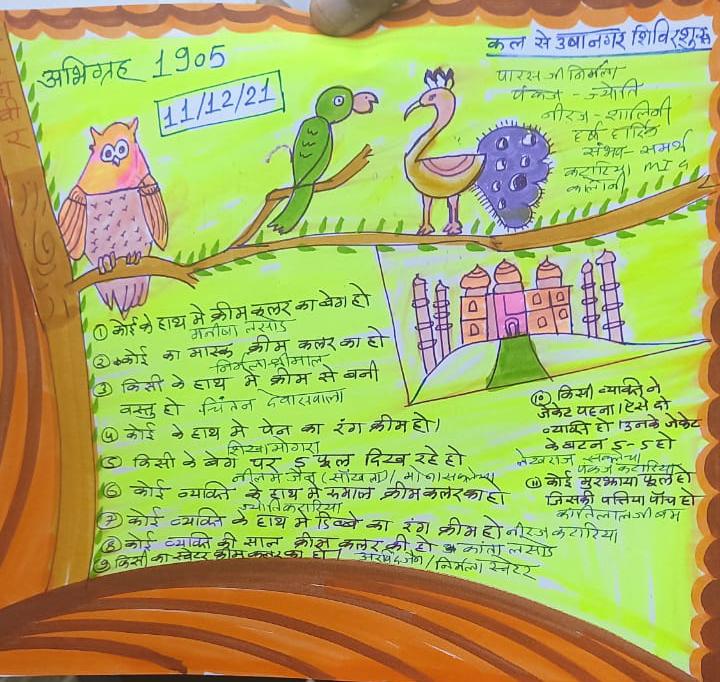 अभिग्रह 1905
11/12/21
कल से उषानगर शिविर शुरू
पारस जी निर्मला
पंकज - ज्योति
नीरज - शालिनी
हर्ष हार्दिक
संभव - समर्थ
कटारिया MIG
कालोनी
① कोई के हाथ मे क्रीम कलर का बेग हो
मनीषा लसोड
② कोई का मास्क क्रीम कलर का हो
निर्मला श्रीमाल
③ किसी के हाथ मे क्रीम से बनी
वस्तु हो चिंतन देवासवाला
④ कोई के हाथ मे पेन का रंग क्रीम हो।
शिखा मोगरा
⑤ किसी के बेग पर 5 फूल दिख रहे हो
नीलम जैन
⑥ कोई व्यक्ति के हाथ मे रुमाल क्रीम कलर का हो
ज्योति कटारिया
⑦ कोई व्यक्ति के हाथ मे डिब्बे का रंग क्रीम हो नीरज कटारिया
⑧ कोई व्यक्ति की साल क्रीम कलर की हो कांता लसोड
⑨ किसी का स्वेटर क्रीम कलर का हो। / निर्मला स्वेटर
⑩ किसी व्यक्ति ने
जेकेट पहना। ऐसे दो
व्यक्ति हो। उनके जेकेट
के बटन 5-5 हो
लेखराज सकलेचा
पंकज कटारिया
⑪ कोई मुरझाया फूल हो
जिसकी पत्तिया पाँच हो
कांतिलालजी बम